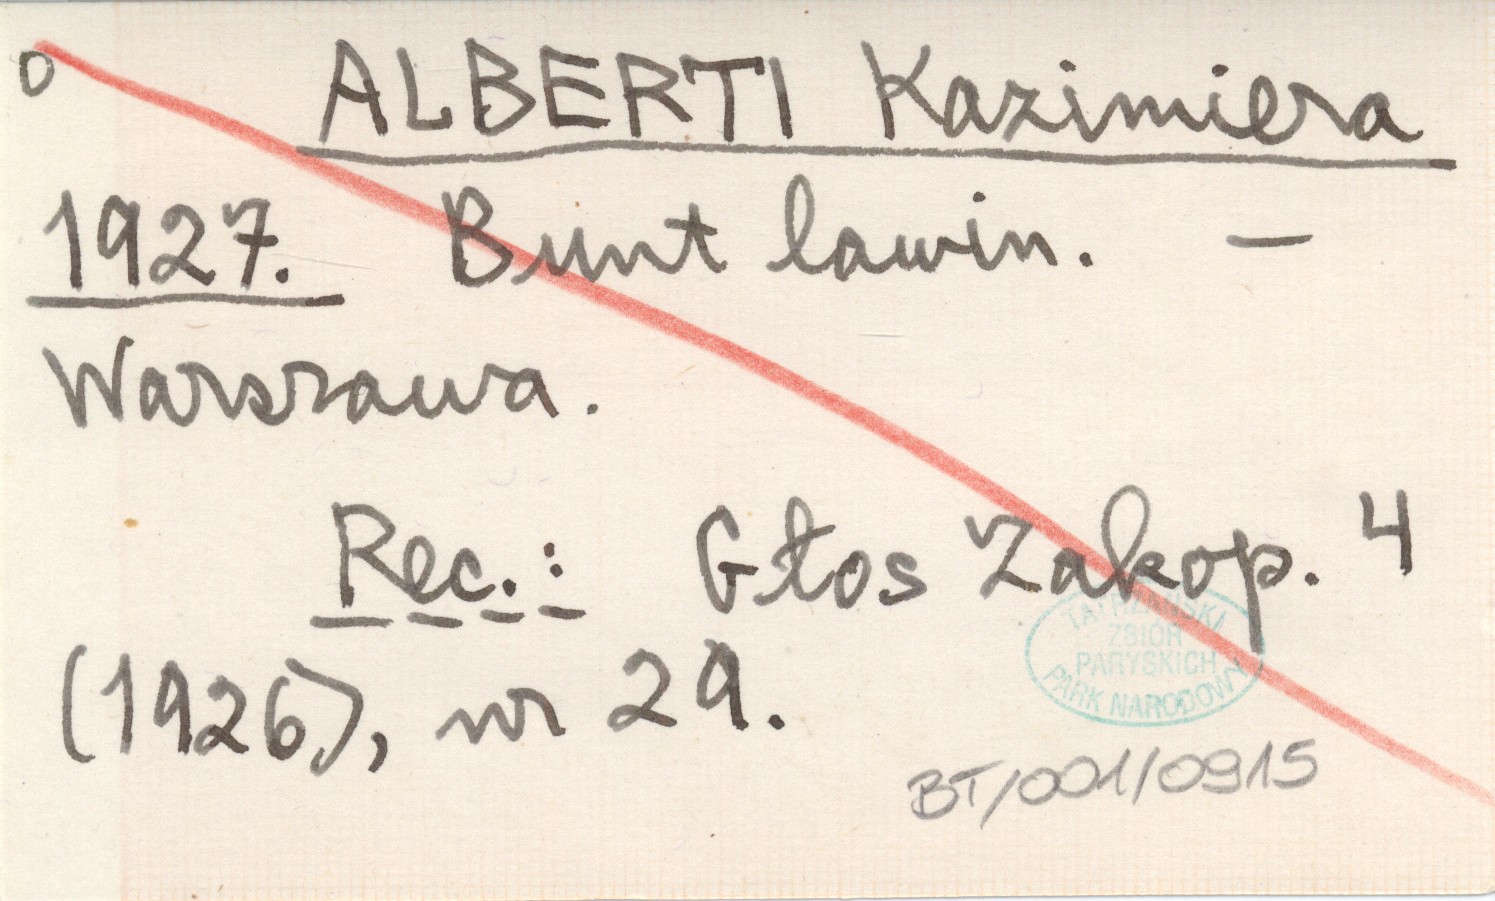 o ALBERTI Kazimiera
1927. Bunt lawin. —
Warszawa.
Rec.: Głos Zakop. 4
(1926), nr 29.
TATRZAŃSKI
ZBIÓR
PARYSKICH
PARK NARODOWY
BT/001/0915